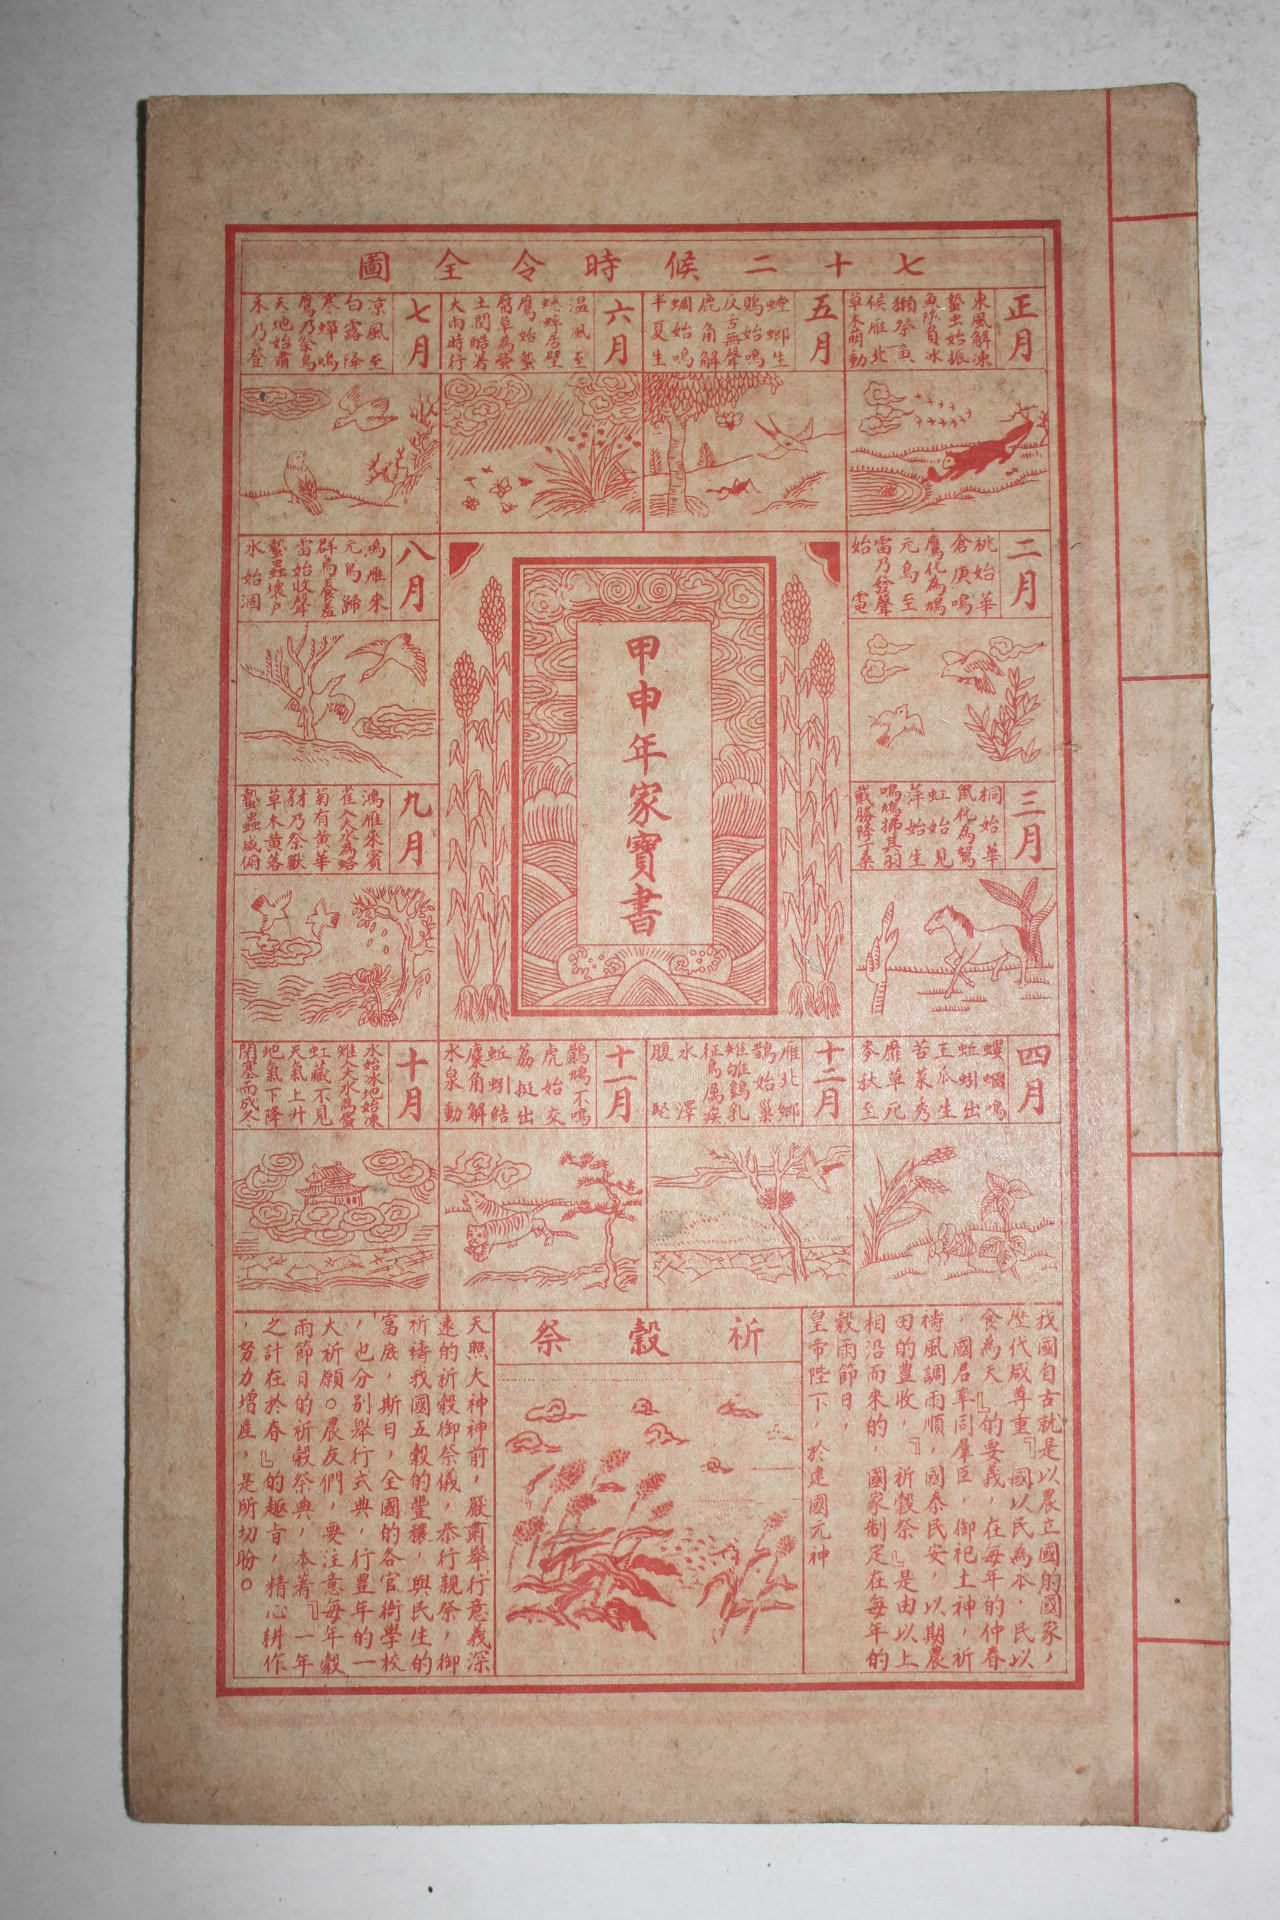 七十二候時令全圖
正月
東風解凍
蟄虫始振
魚陟負冰
獺祭魚
候雁北
草木萌動
五月
螳螂生
鵙始鳴
反舌無聲
鹿角解
蜩始鳴
半夏生
六月
温風至
蟋蟀居壁
鷹始蟄
腐草為螢
土潤暗暑
大雨時行
七月
凉風至
白露降
寒蟬鳴
鷹乃祭鳥
天地始肅
禾乃登
二月
桃始華
倉庚鳴
鷹化為鳩
元鳥至
雷乃發聲
始電
甲申年家寶書
八月
鴻雁來
元鳥歸
群鳥養羞
雷始收聲
蟄蟲壞戶
水始涸
三月
桐始華
鼠化為鴽
虹始見
萍始生
鳴鳩拂其羽
戴勝降于桑
九月
鴻雁來賓
雀入大水為蛤
菊有黄華
豺乃祭獸
草木黄落
蟄蟲咸俯
四月
螻蟈鳴
蚯蚓出
王瓜生
苦菜秀
靡草死
麥秋至
十二月
雁北鄉
鵲始巢
雉雊鷄乳
征鳥厲疾
水澤
腹堅
十一月
鶡鴠不鳴
虎始交
荔挺出
蚯蚓結
麋角解
水泉動
十月
水始冰地始凍
雉入大水為蜃
虹藏不見
天氣上升
地氣下降
閉塞而成冬
我國自古就是以農立國的國家，
歷代咸尊重『國以民為本，民以
食為天』的要義，在每年的仲春
，國君率同羣臣，御祀土神，祈
禱風調雨順，國泰民安，以期農
田的豊收，『祈穀祭』是由以上
相沿而來的，國家制定在每年的
穀雨節日，
皇帝陛下，於建國元神
祈穀祭
天照大神神前，嚴肅舉行意義深
遠的祈穀御祭儀，恭行親祭，御
祈禱我國五穀的豐穰，與民生的
富庶，斯日，全國的各官衙學校
，也分別舉行式典，行豊年的一
大祈願。農友們，要注意每年穀
雨節日的祈穀祭典，本著『一年
之計在於春』的趣旨，精心耕作
，努力增產，是所切盼。